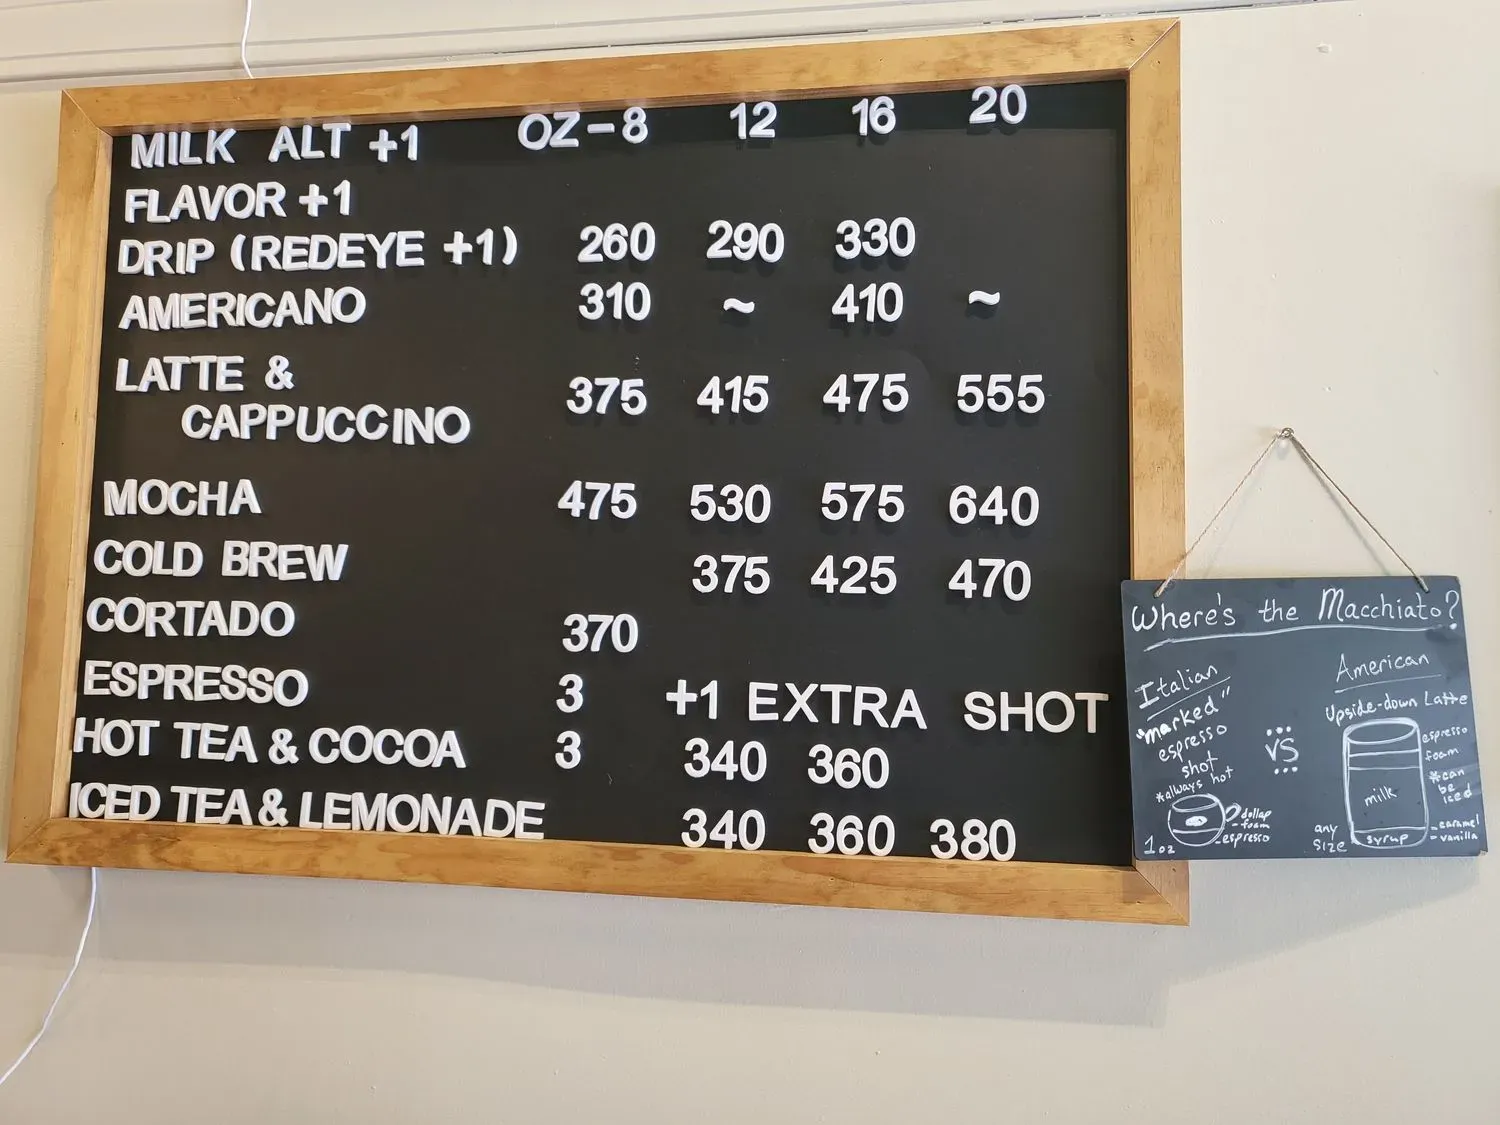 MILK ALT +1 OZ-8 12 16 20
FLAVOR +1
DRIP (REDEYE +1) 260 290 330
AMERICANO 310 ~ 410 ~
LATTE &
CAPPUCCINO 375 415 475 555
MOCHA 475 530 575 640
COLD BREW 375 425 470
CORTADO 370
ESPRESSO 3 +1 EXTRA SHOT
HOT TEA & COCOA 3 340 360
ICED TEA & LEMONADE 340 360 380
Where's the Macchiato?
Italian
"marked"
espresso
shot
*always hot
dollap
- foam
- espresso
1 oz
VS
American
Upside-down Latte
espresso
foam
*can
be
iced
milk
syrup
- caramel
- vanilla
any
size